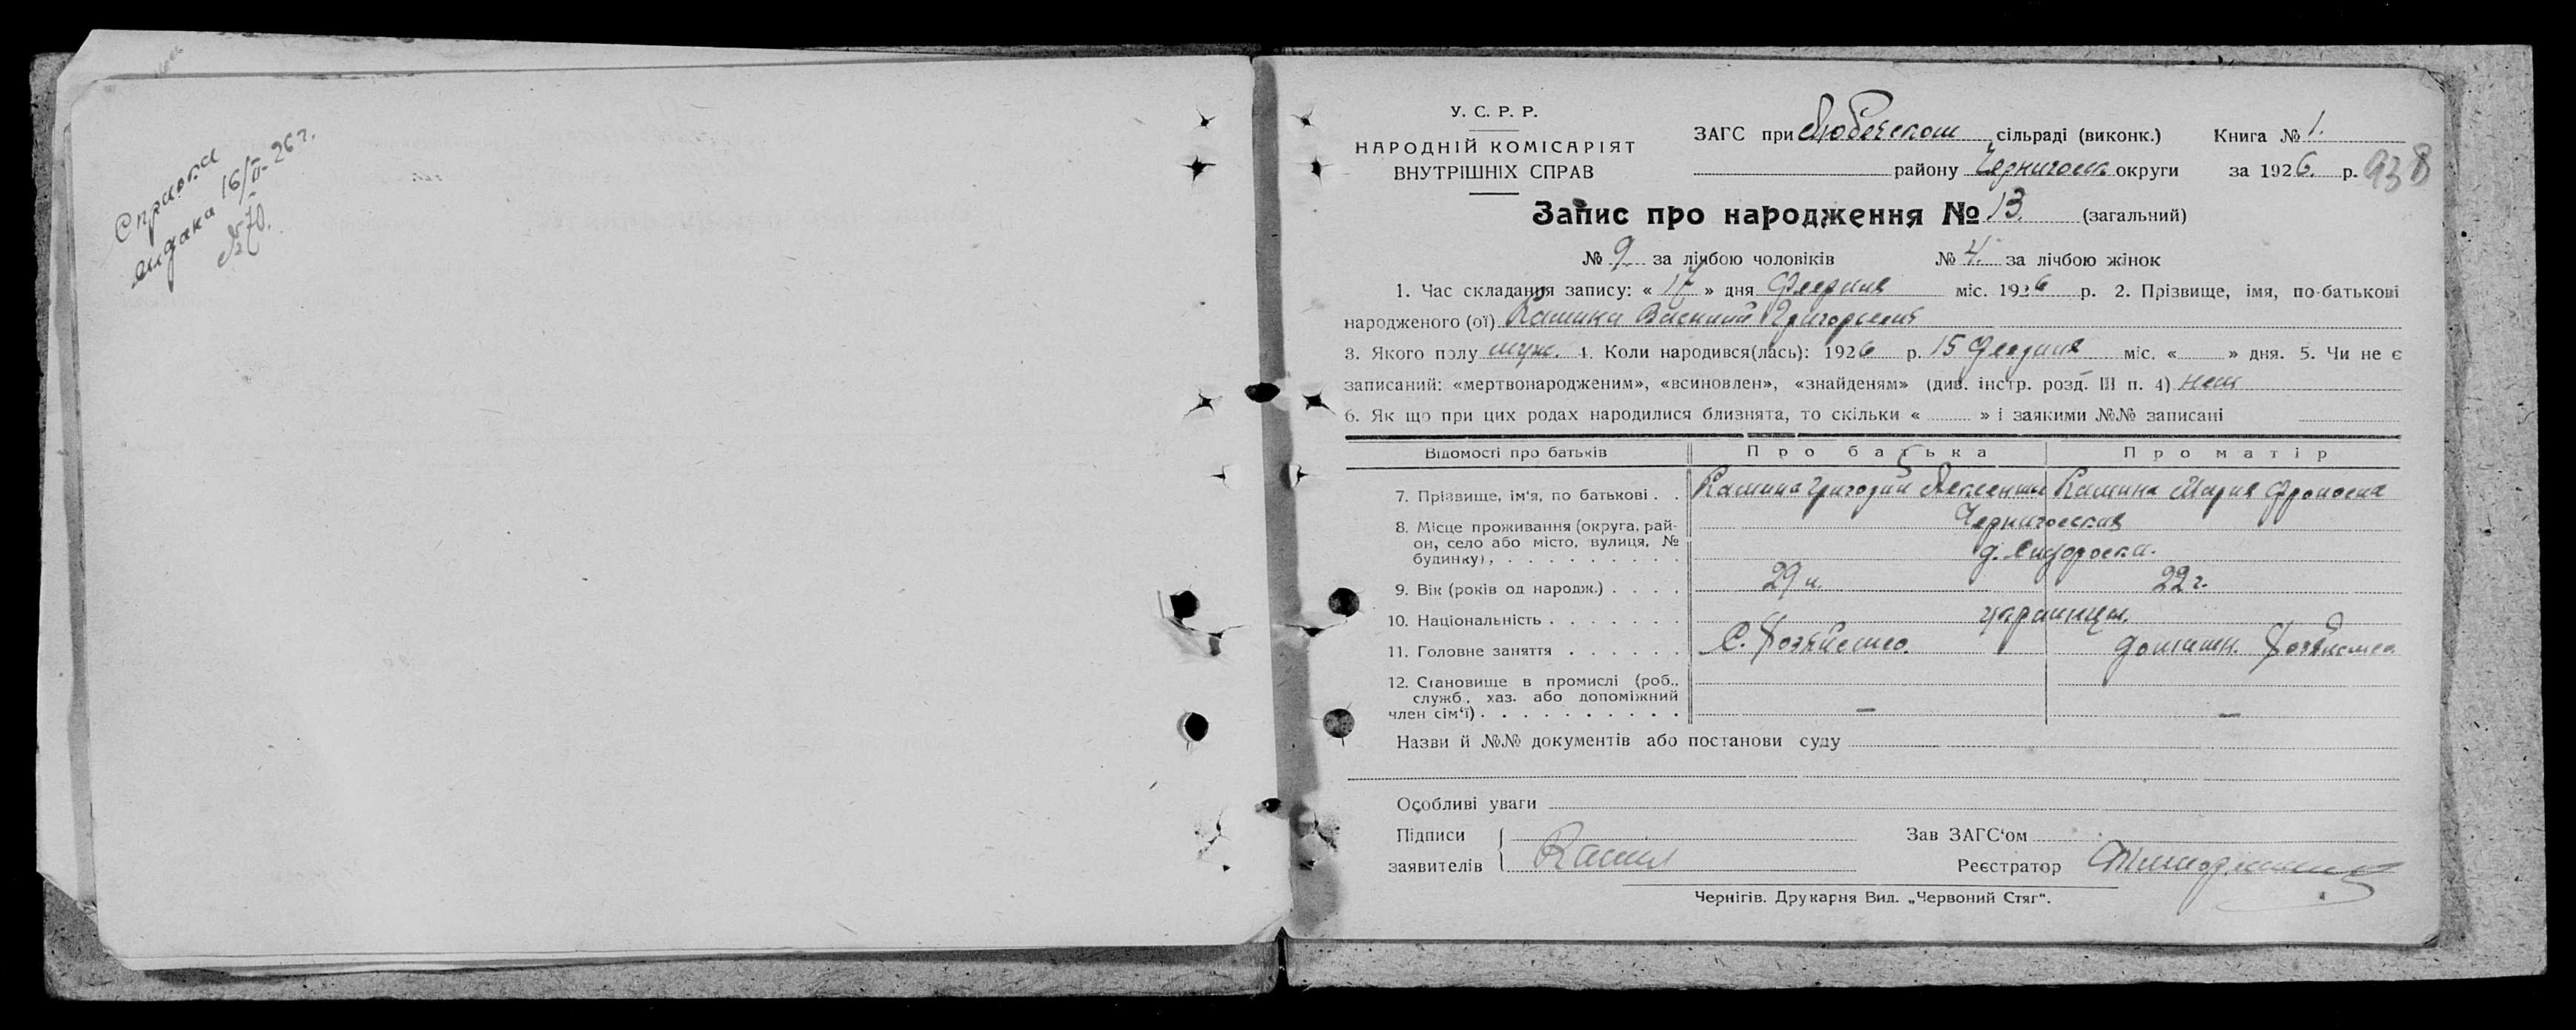 Справка
видана 16/II-26 г.
№ 70.
У. С. Р. Р.
НАРОДНІЙ КОМІСАРІЯТ
ВНУТРІШНІХ СПРАВ
ЗАГС при Любечском сільраді (виконк.) Книга № 1.
району Черниговск округи за 1926. р. 938
Запис про народження № 13. (загальний)
№ 9 за лічбою чоловіків № 4. за лічбою жінок
1. Час складання запису: « 17 » дня Февраля міс. 1926 р. 2. Прізвище, імя, по-батькові
народженого (ої) Василий Григорьевич
3. Якого полу муж. 4. Коли народився(лась): 1926 р. 15 Февраля міс. « » дня. 5. Чи не є
записаний: «мертвонародженим», «всиновлен», «знайденям» (див. інстр. розд. III п. 4) нет
6. Як що при цих родах народилися близнята, то скільки « » і заякими №№ записані
Відомості про батьків Про батька Про матір
7. Прізвище, ім'я, по батькові . . Григорий Мария
8. Місце проживання (округа, рай- Черниговская
он, село або місто, вулиця, № д.
будинку), . . . . . . . . . .
9. Вік (років од народж.) . . . . 29 л. 22 г.
10. Національність . . . . . . . украинцы.
11. Головне заняття . . . . . . С. Хозяйство. домашн. хозяйство
12. Становище в промислі (роб.,
служб., хаз. або допоміжний
член сім'ї) . . . . . . . . . . — —
Назви й №№ документів або постанови суду
Особливі уваги
Підписи Зав ЗАГС'ом
заявителів Реєстратор
Чернігів. Друкарня Вид. „Червоний Стяг".